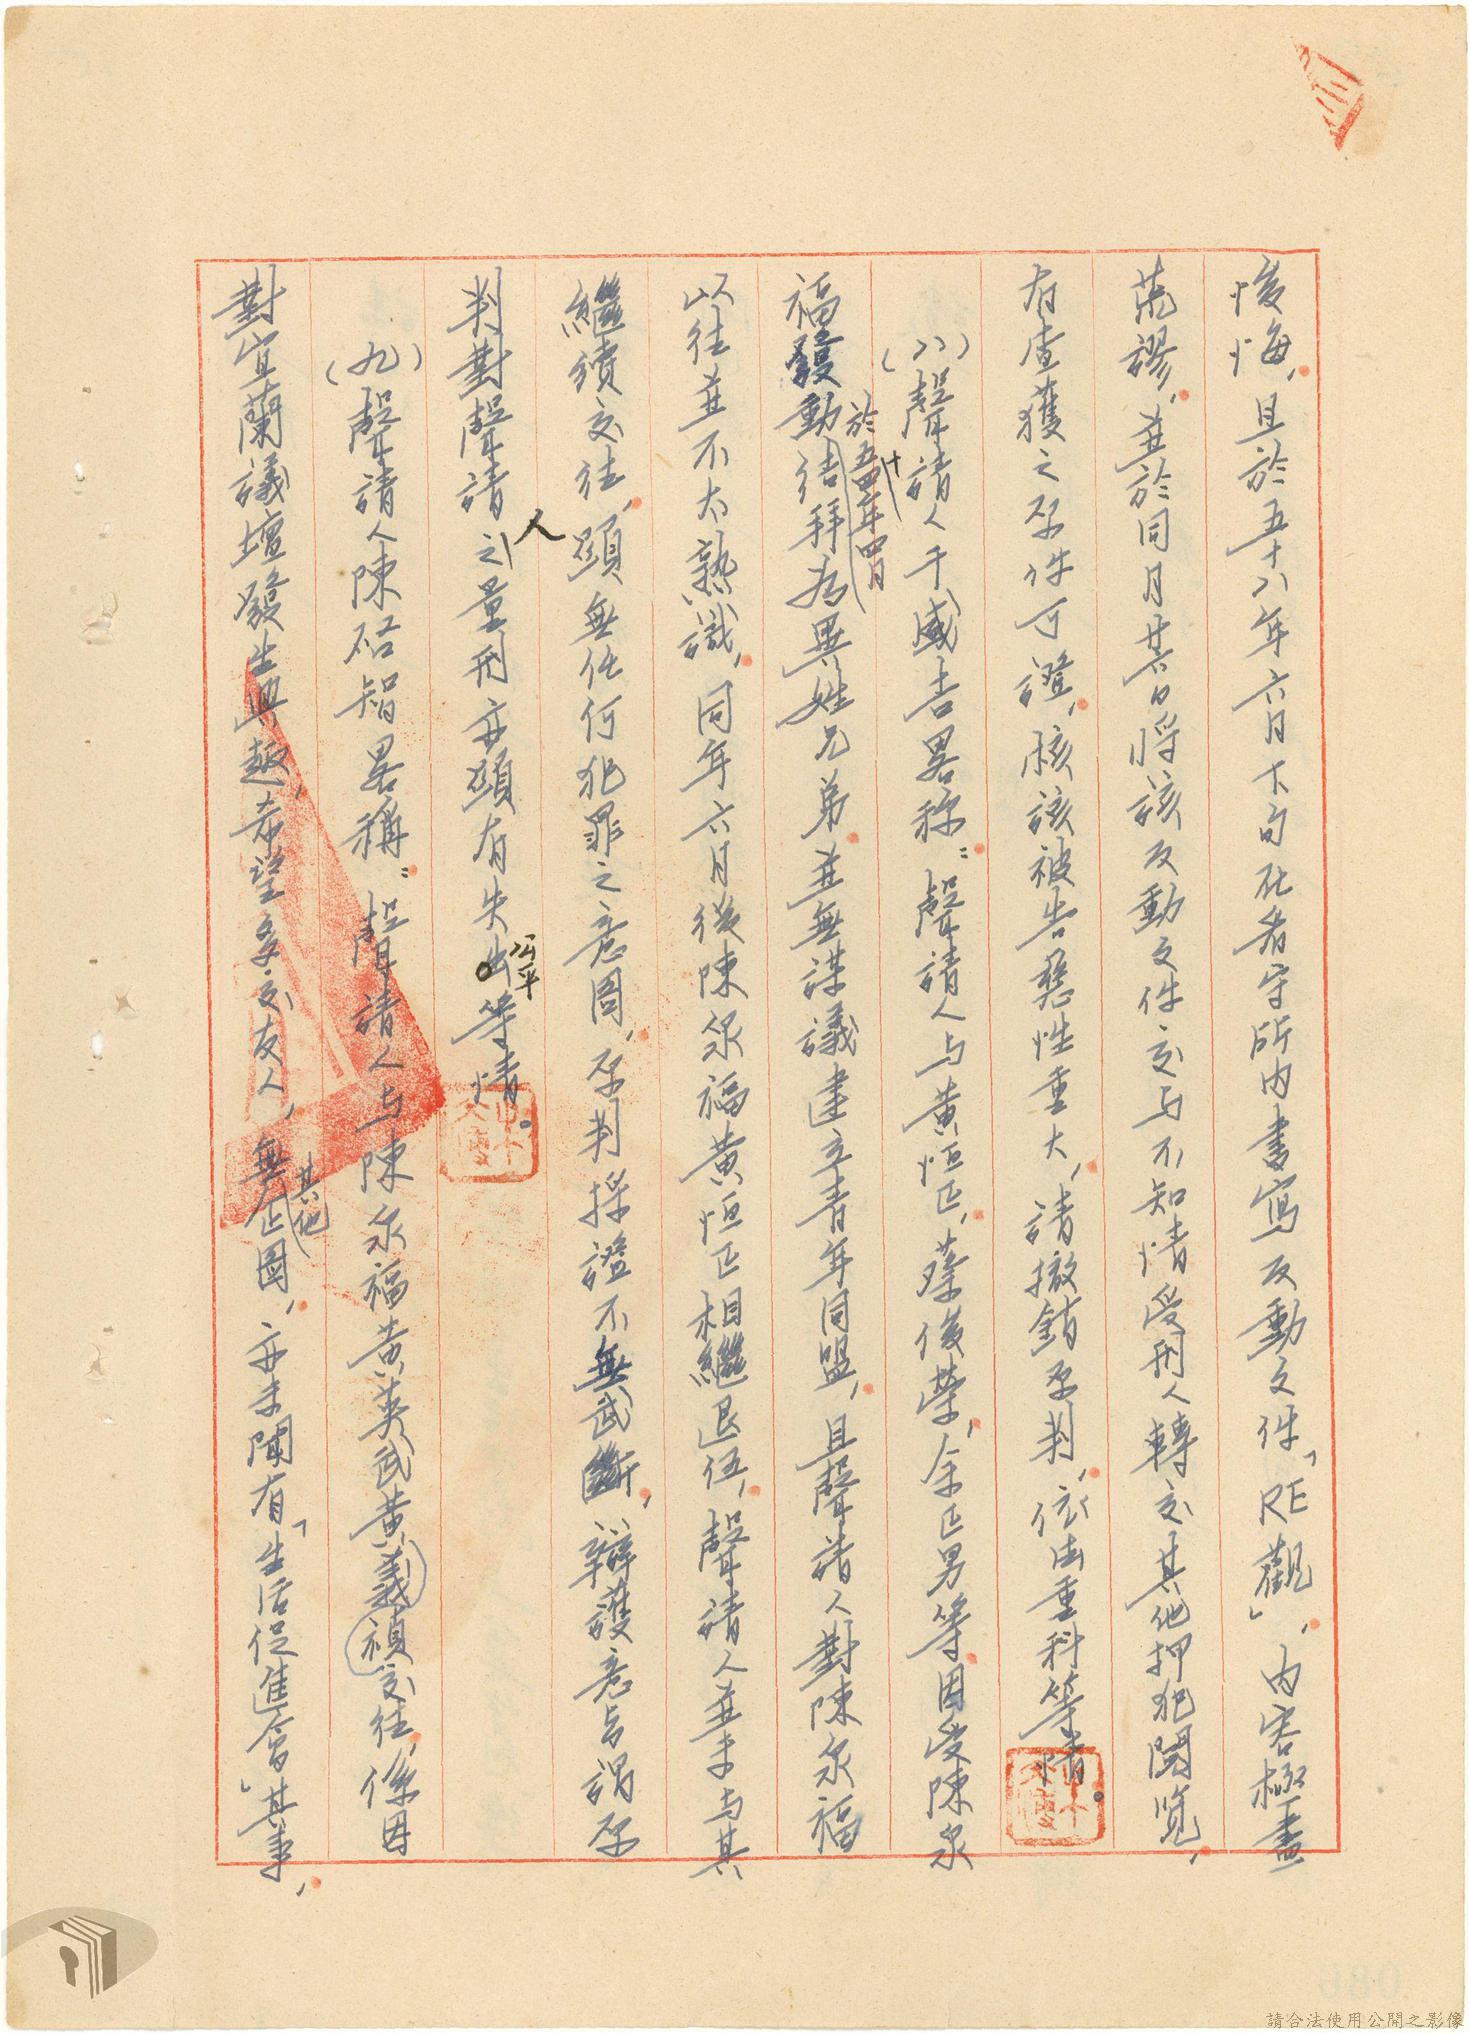 悛悔，且於五十八年六月下旬在看守所內書寫反動文件「RE觀」，內容極盡
荒謬，並於同月廿八日將該反動文件交与不知情受刑人轉交其他押犯閱覽，
有查獲之原件可證，核該被告惡性重大，請撤銷原判，依法重科等情。
(八)聲請人于盛吉畧称：聲請人与黃恒正，蔡俊榮，余正男等因受陳泉
福發動於五十四年四月結拜為異姓兄弟並無謀議建立青年同盟，且聲請人對陳泉福
以往並不太熟識，同年六月後陳泉福黃恒正相繼退伍，聲請人並未与其
繼續交往，顯無任何犯罪之意圖，原判採證不無武斷，辯護意旨謂原
判對聲請人之量刑亦顯有失公平等情。
(九)聲請人陳啟智畧稱：聲請人与陳泉福黃英武黃義禎交往，係因
對宜蘭議壇發生興趣，希望多交友人，無其他企圖，亦未聞有「生活促進會」其事，
請合法使用公開之影像